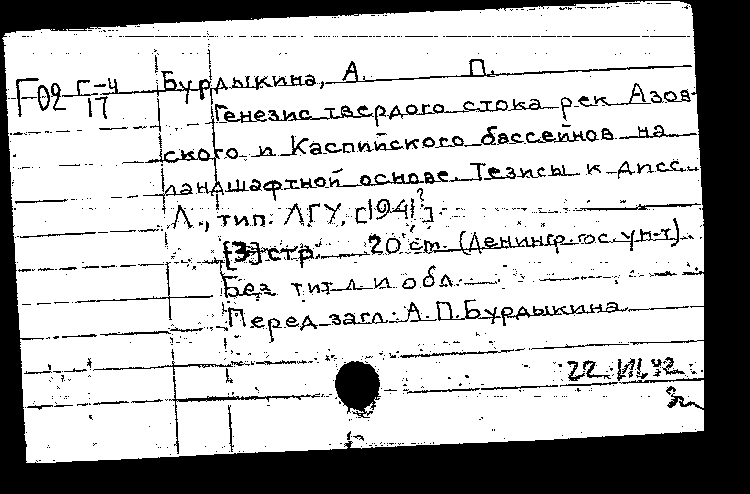 Г02 Г-4 Бурдыкина, А. П.
17
Генезис твердого стока рек Азов-
ского и Каспийского бассейнов на
ландшафтной основе. Тезисы к дисс...
Л., тип. ЛГУ, [1941?].
[3] стр. 20 см. (Ленингр. гос. ун-т).
Без тит. л. и обл.
Перед загл.: А. П. Бурдыкина
22